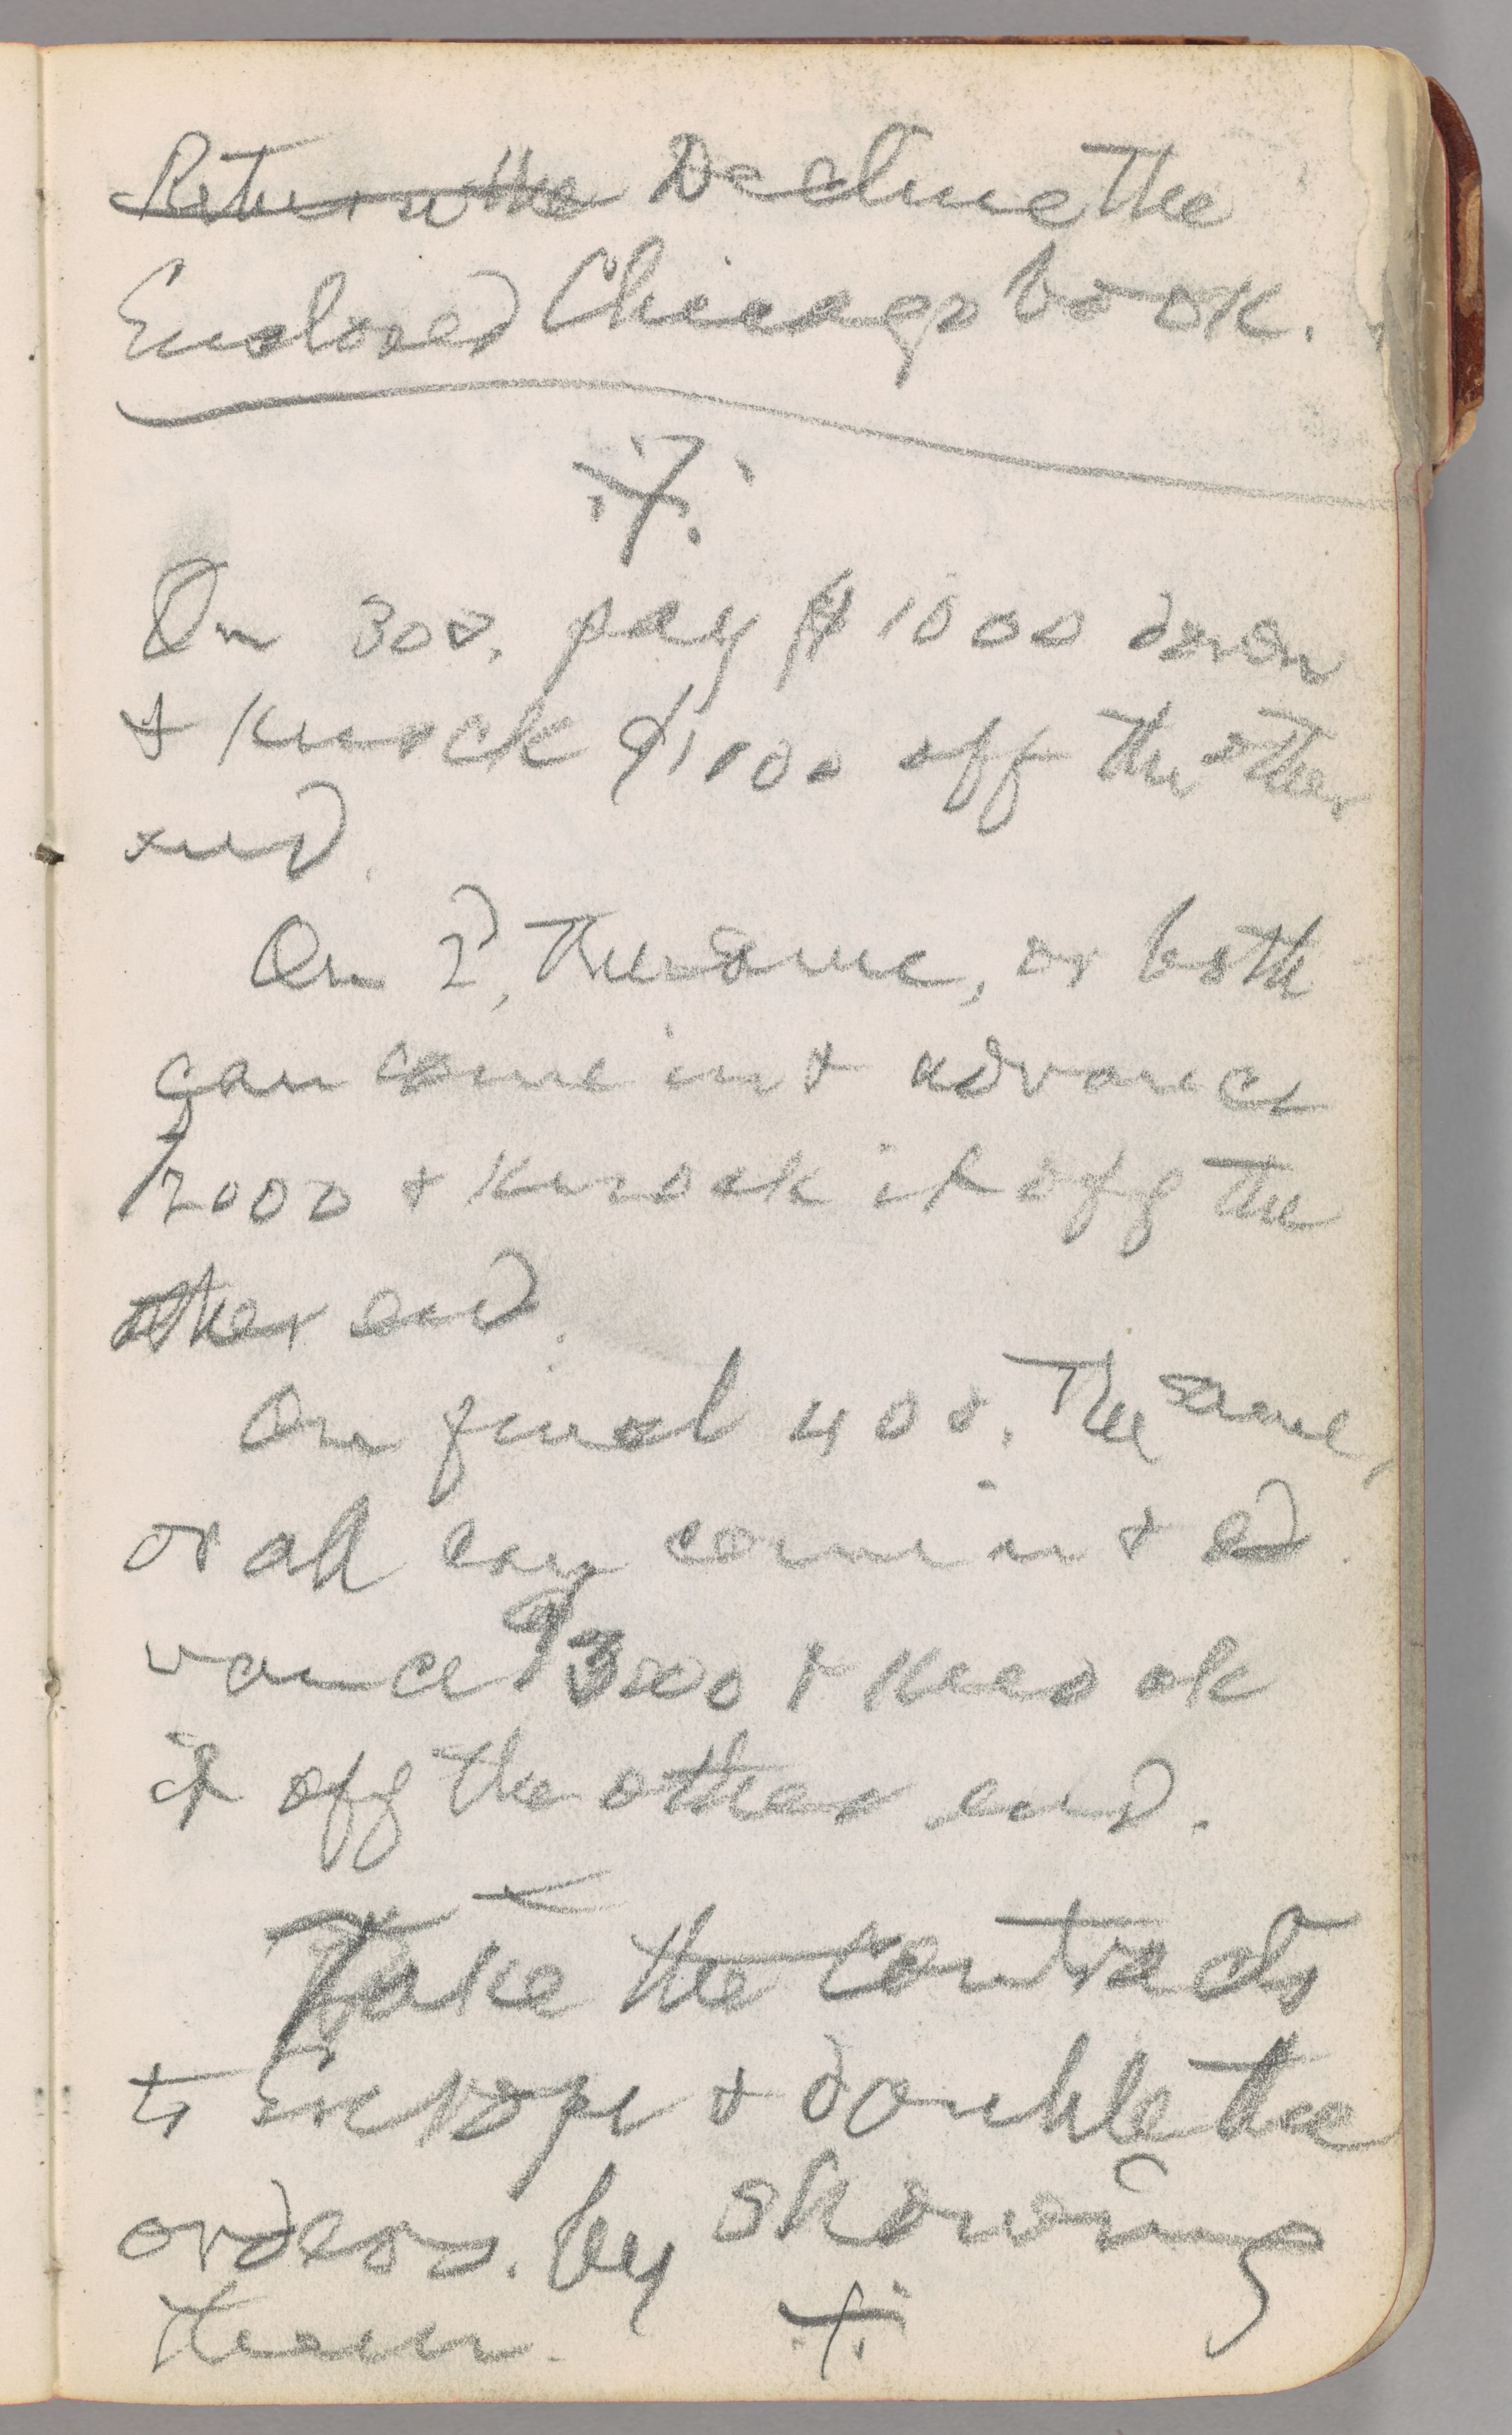 Return the Decline the
Enclosed Chicago book.
On 300, pay $1000 down
& knock $1100 off the other
end.
On 2d, the same, or both
can come in & advance
$2000 & knock it off the
other end.
On final 400, the same,
or all can come in & ad
vance $3000 & knock
it off the other end.
Take the contracts
to Europe & double the
orders. by showing
them.